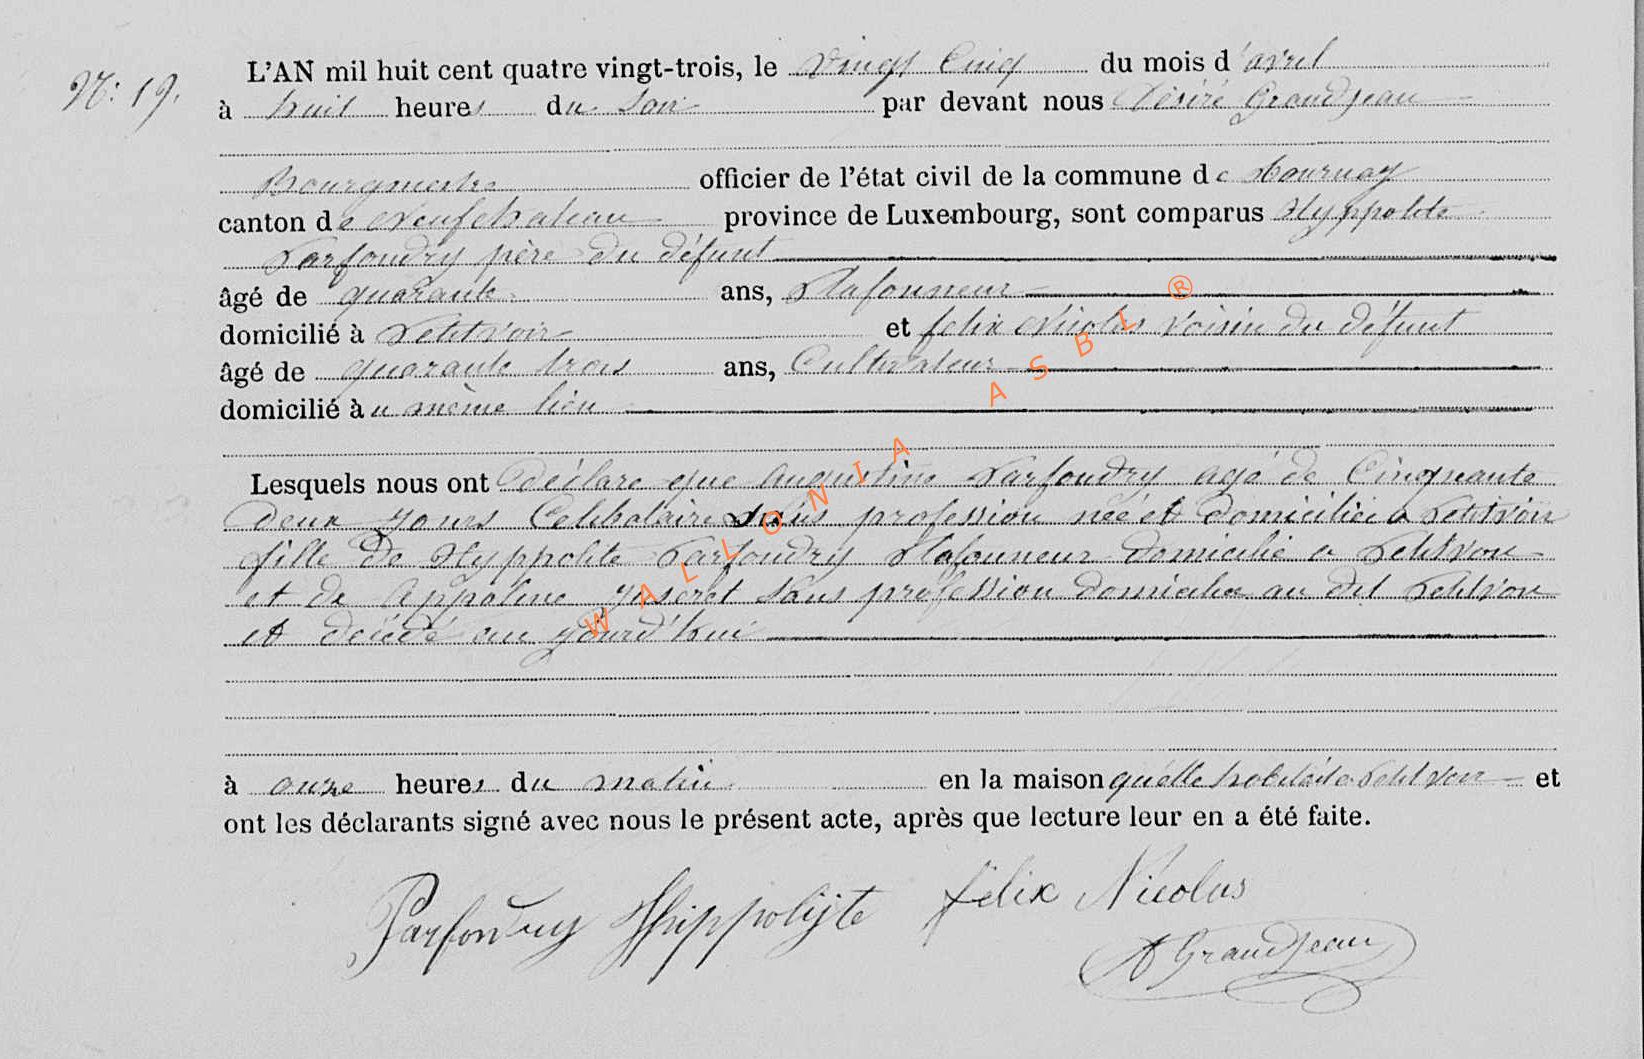 N.º 19.
L'AN mil huit cent quatre vingt-trois, le vingt Cinq du mois d'avril
à huit heures du Soir par devant nous Désiré Grandjean
Bourgmestre officier de l'état civil de la commune de Tournay
canton de Neufchateau province de Luxembourg, sont comparus Hyppolite
Parfondry père du défunt
âgé de quarante ans, Plafonneur
domicilié à Petitvoir et felix Nicolas voisin du défunt
âgé de quarante trois ans, Cultivateur
domicilié à u même lieu
Lesquels nous ont déclare que Augustine Parfondry agé de Cinquante
deux jours Celibataire sans profession neé et domiciliée a Petitvoir
fille de Hyppolite Parfondry Plafonneur domicilié a Petitvoir
et de Appoline sans profession domiciliee au dit Petitvoir
et décédé au yourd'hui
à onze heures du matin en la maison qu'elle habitait a Petitvoir et
ont les déclarants signé avec nous le présent acte, après que lecture leur en a été faite.
Parfondry Hhippolijte felix Nicolas
D Grandjean
WALLONIA ASBL ®